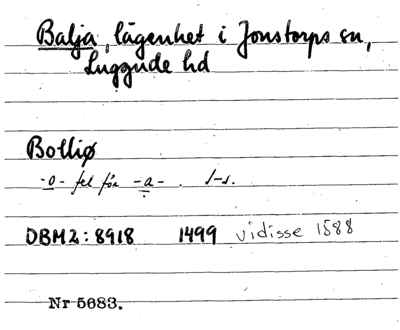 Balja, lägenhet i Jonstorps sn,
Luggude hd
Bolliø
-o- fel för -a-. l-s.
DBM2: 8918 1499 vidisse 1588
Nr 5683.